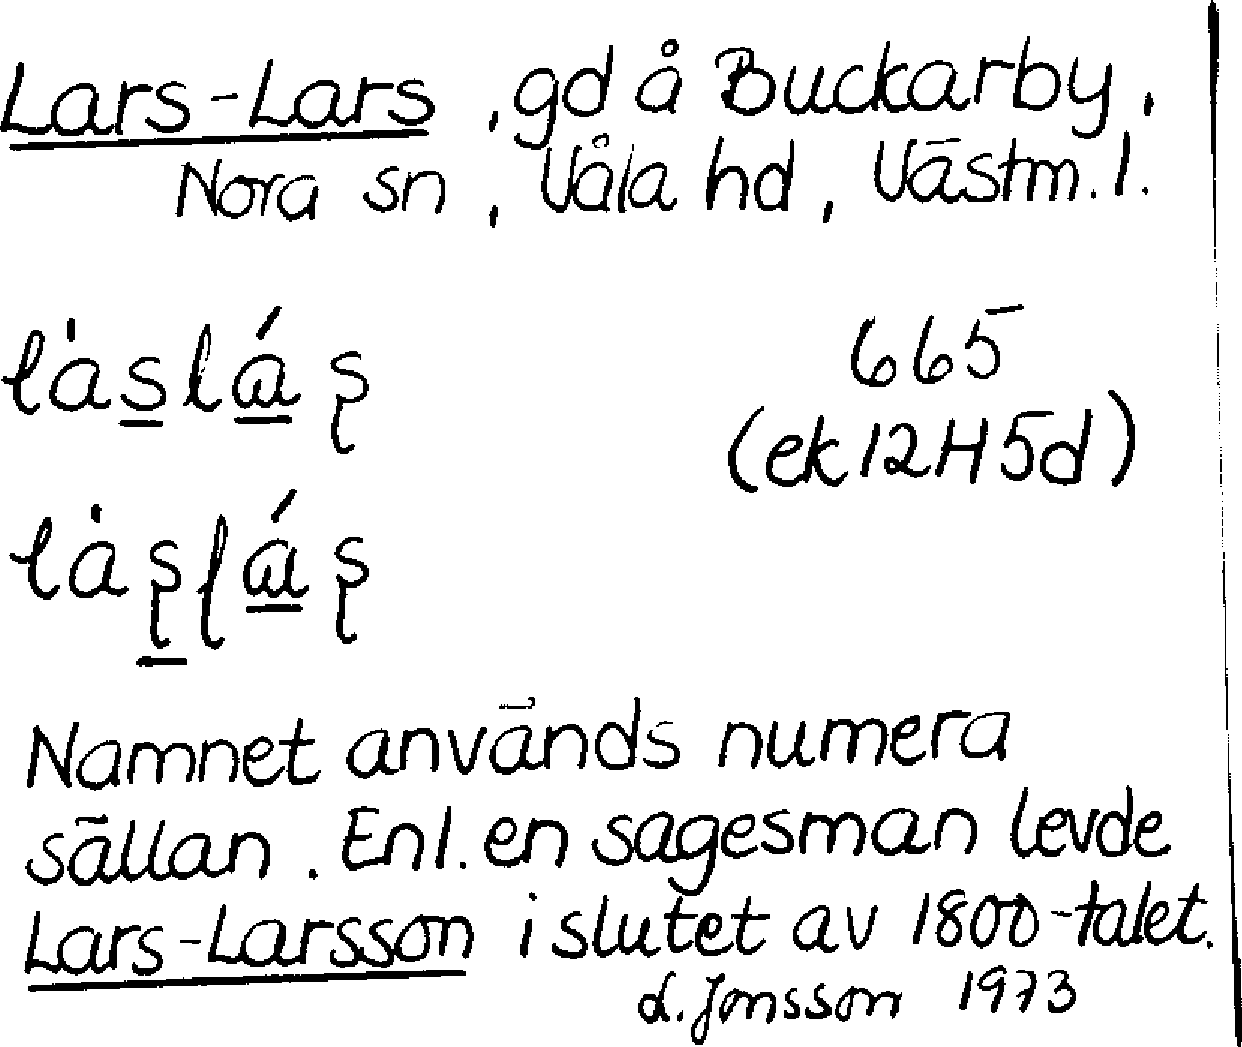 Lars-Lars, gd å Buckarby,
Nora sn, Våla hd, Västm. l.
665
(ek 12H5d)
Namnet används numera
sällan. Enl. en sagesman levde
Lars-Larsson i slutet av 1800-talet.
Jonsson 1973